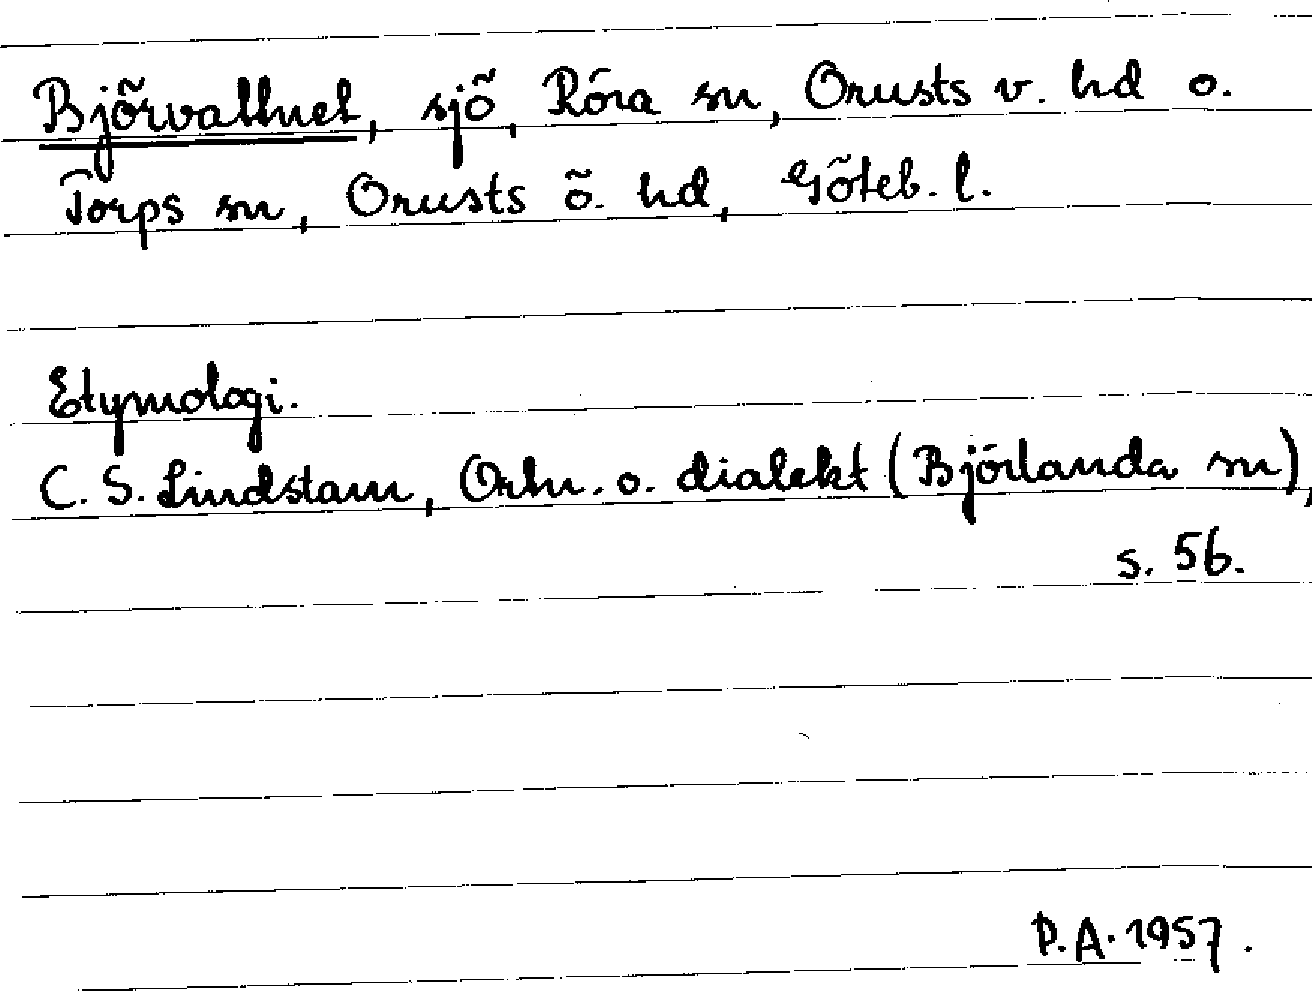 Björvattnet, sjö, Röra sn, Orusts v. hd o.
Torps sn, Orusts ö. hd, Göteb. l.
Etymologi.
C. S. Lindstam, Ortn. o. dialekt (Björlanda sn),
s. 56.
P.A. 1957.